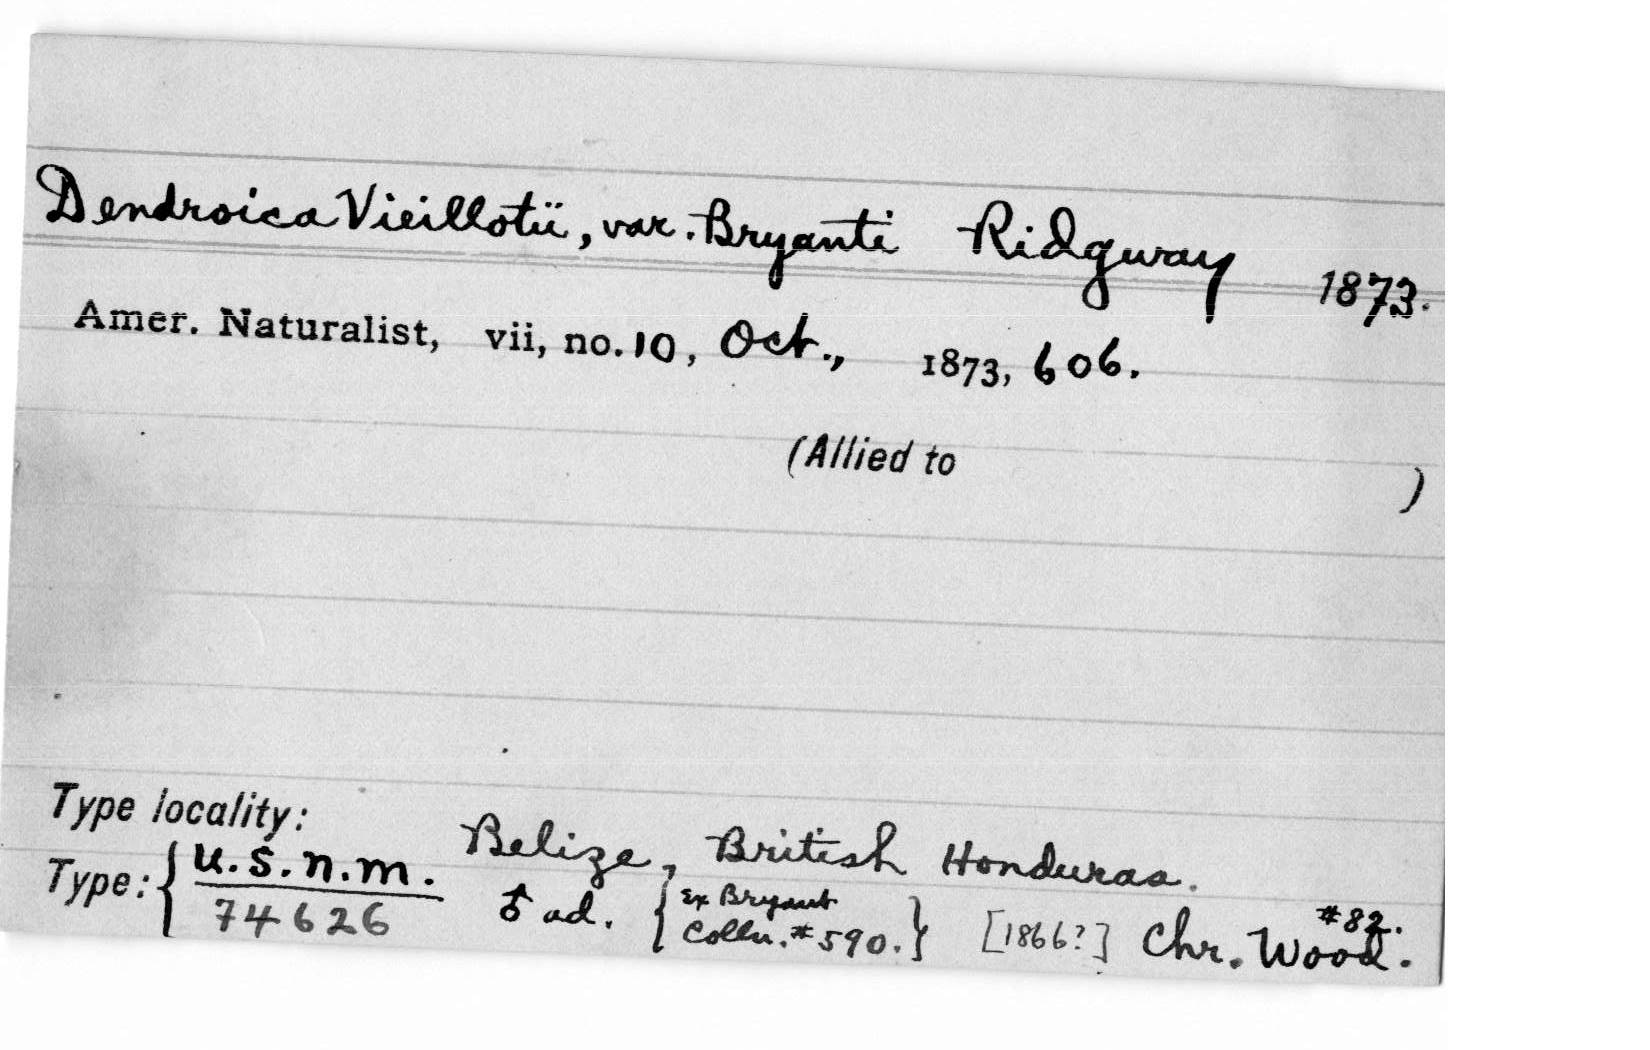 Dendroica Vieillotii, var. Bryanti Ridgway 1873.
Amer. Naturalist, vii, no. 10, Oct., 1873, 606.
(Allied to )
Type locality:
Belize, British Honduras.
Type: { U.S.N.M. ♂ ad. { Ex Bryant } [1866?] Chr. Wood. #82.
74626 Colln. #590.